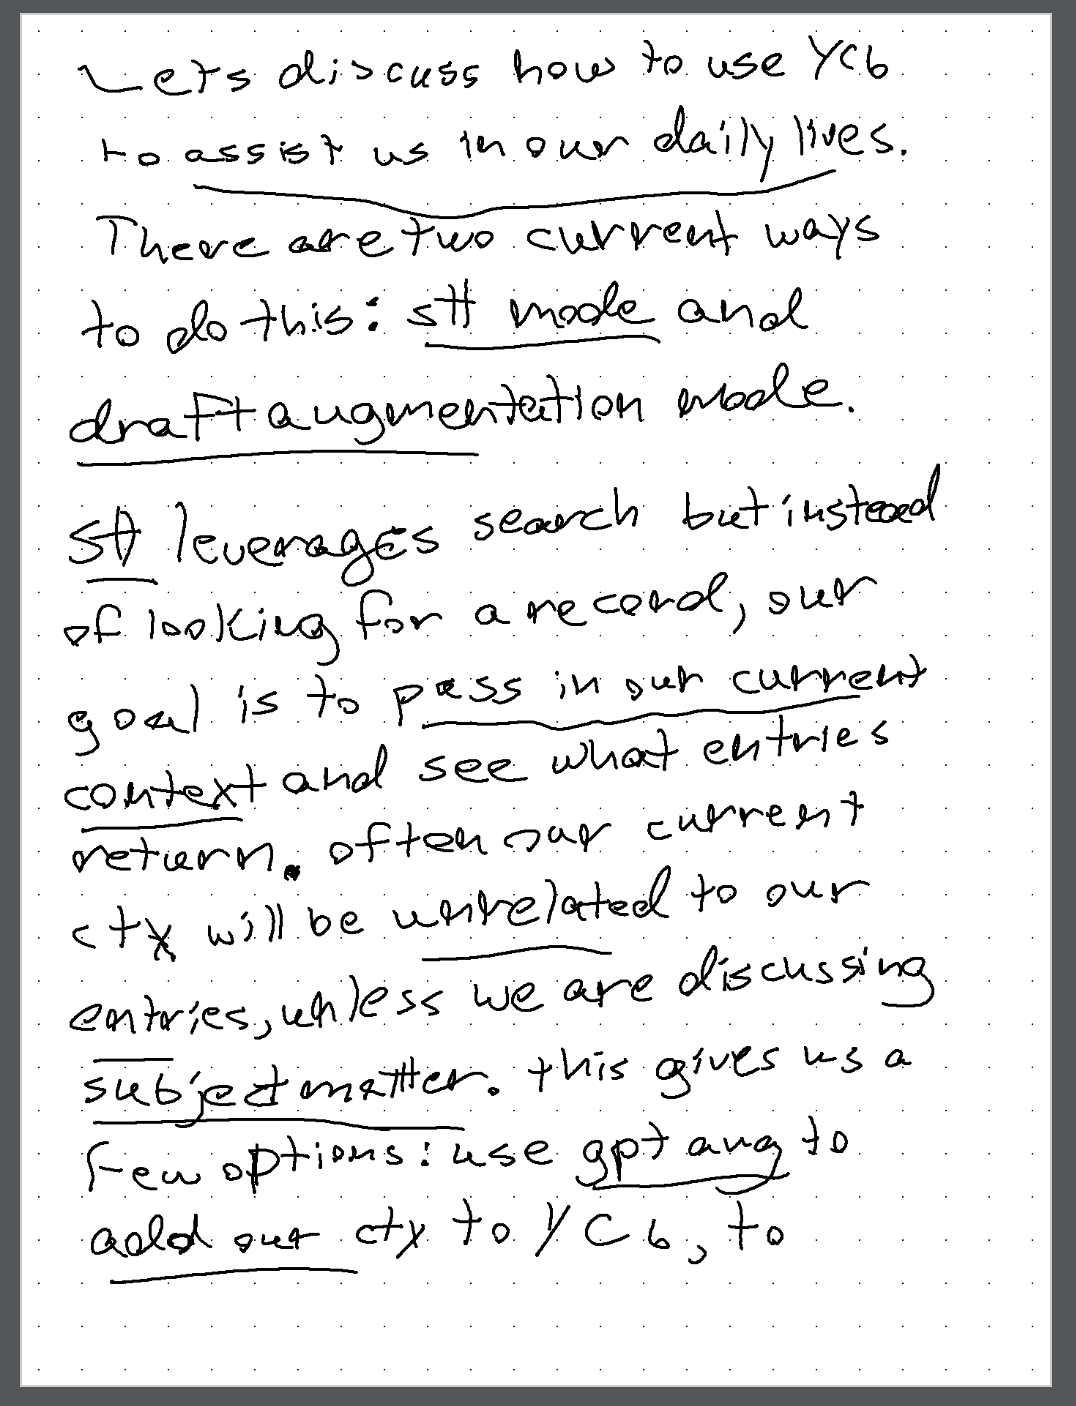 Lets discuss how to use YCb
to assist us in our daily lives.
There are two current ways
to do this: stt mode and
draft augmentation mode.
stt leverages search but instead
of looking for a record, our
goal is to pass in our current
context and see what entries
return. often our current
ctx will be unrelated to our
entries, unless we are discussing
subject matter. this gives us a
few options: use gpt aug to
add our ctx to YCb, to